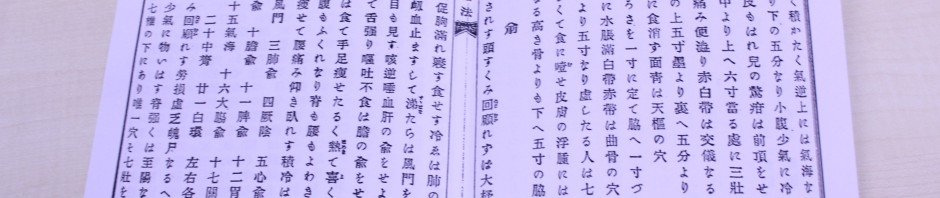 く積かたく氣逆上には氣海な
り下の五分なり小腹少氣に冷
皮もはれ兒の驚疳は前頂をせ
中より上へ六寸當る處に三壯
痛み便澁り赤白帶は交儀なる
の上五寸墨より裏へ五分より
に食消ず面靑は天樞の穴
ろさを一寸に定て脇へ一寸
に水脹滿白帶赤帶は曲骨の穴
より五寸なり虚したる人は七
くて食に噎せ皮膚の浮腫には
る高き骨よりも下へ五寸の脇
兪
されす頭すくみ回顧れずは大杼
法
促胸滿れ寢す食せす冷ゑは肺の
衂血止ますして涕たらは風門を
目も見す咳逆唾血肝の兪をせよ
て舌强り嘔吐不食は膽の兪をせ
は食て手足瘦せたるく熱て喜く
腹もふくれなり脊も腰もよわき
瘦せて腰痛み仰き臥れす積冷は
風門 三肺兪 四厥陰 五心兪
兪 十膽兪 十一脾兪 十二胃
十五氣海 十六大膓兪 十七關
二十中膂 廿一白環 左右各
み回顧れす勞損虚乏魄戶なるへ
少氣に物いはす脊强くは至陽な
七椎の下にあり唯一穴を七壯を